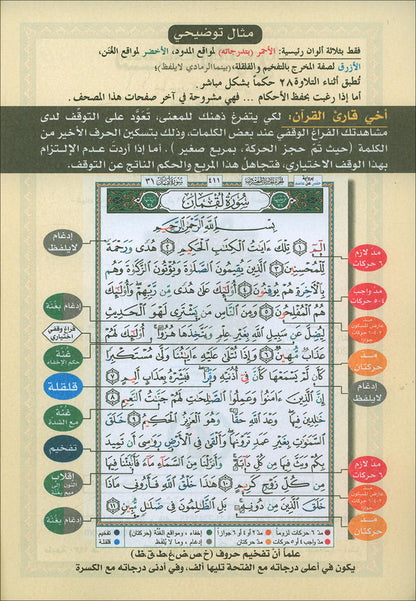 مثال توضيحي
فقط بثلاثة ألوان رئيسية: الأحمر (بتدرجاته) لمواقع المدود، الأخضر لمواقع الغنن،
الأزرق لصفة المخرج بالتفخيم والقلقلة، (بينما الرمادي لا يلفظ)؛
تُطبق أثناء التلاوة ٢٨ حكماً بشكل مباشر.
أما إذا رغبت بحفظ الأحكام ... فهي مشروحة في آخر صفحات هذا المصحف.
أخي قارئ القرآن: لكي يتفرغ ذهنك للمعنى، تعوّد على التوقف لدى
مشاهدتك الفراغ الوقفي عند بعض الكلمات، وذلك بتسكين الحرف الأخير من
الكلمة (حيث تم حجز الحركة، بمربع صغير). أما إذا أردت عدم الإلتزام
بهذا الوقف الاختياري، فتجاهل هذا المربع والحكم الناتج عن التوقف.
سورة لقمان ٣١
٤١١
سُورَةُ لُقْمَان
بِسْمِ اللَّهِ الرَّحْمَنِ الرَّحِيمِ
الٓمٓ ١ تِلْكَ ءَايَتُ الْكِتَبِ الْحَكِيمِ ٢ هُدًى وَرَحْمَةً
لِّلْمُحْسِنِينَ ٣ الَّذِينَ يُقِيمُونَ الصَّلَوةَ وَيُؤْتُونَ الزَّكَوةَ وَهُم
بِالْآخِرَةِ هُمْ يُوقِنُونَ ٤ أُوْلَئِكَ عَلَى هُدًى مِّن رَّبِّهِمْ وَأُوْلَئِكَ
هُمُ الْمُفْلِحُونَ ٥ وَمِنَ النَّاسِ مَن يَشْتَرِي لَهْوَ الْحَدِيثِ
لِيُضِلَّ عَن سَبِيلِ اللَّهِ بِغَيْرِ عِلْمٍ وَيَتَّخِذَهَا هُزُوًا أُوْلَئِكَ لَهُمْ
عَذَابٌ مُّهِينٌ ٦ وَإِذَا تُتْلَى عَلَيْهِ ءَايَتُنَا وَلَّى مُسْتَكْبِرًا
كَأَن لَّمْ يَسْمَعْهَا كَأَنَّ فِي أُذُنَيْهِ وَقْرًا فَبَشِّرْهُ بِعَذَابٍ أَلِيمٍ ٧
إِنَّ الَّذِينَ ءَامَنُوا وَعَمِلُوا الصَّلِحَتِ لَهُمْ جَنَّتُ النَّعِيمِ ٨
خَلِدِينَ فِيهَا وَعْدَ اللَّهِ حَقًّا وَهُوَ الْعَزِيزُ الْحَكِيمُ ٩ خَلَقَ
السَّمَوَتِ بِغَيْرِ عَمَدٍ تَرَوْنَهَا وَأَلْقَى فِي الْأَرْضِ رَوَسِيَ أَن تَمِيدَ
بِكُمْ وَبَثَّ فِيهَا مِن كُلِّ دَابَّةٍ وَأَنزَلْنَا مِنَ السَّمَاءِ مَاءً فَأَنبَتْنَا فِيهَا
مِن كُلِّ زَوْجٍ كَرِيمٍ ١٠ هَذَا خَلْقُ اللَّهِ فَأَرُونِي مَاذَا
خَلَقَ الَّذِينَ مِن دُونِهِ بَلِ الظَّلِمُونَ فِي ضَلَلٍ مُّبِينٍ ١١
مد لازم
٦ حركات
مد واجب
٤-٥ حركات
مـد
حركتان
إدغام
لا يلفظ
مد لازم
٦ حركات
مـد
حركتان
إدغام
لا يلفظ
إدغام بغنة
فراغ وقفي
اختياري
غنّة
حكم الإخفاء
قلقلة
غنّة
مع الشدة
تفخيم
إقلاب
النون إلى
ميم بغنة
إدغام بغنة
مد ٦ حركات لزوماً
مد ٢ أو ٤ أو ٦ جوازاً
إخفاء، ومواقع الغنّة (حركتان)
تفخيم
مد واجب ٤ أو ٥ حركات
مد حركتان
إدغام، وما لا يُلفظ
قلقلة
علماً أن تفخيم حروف (خ،ص،ض،غ،ط،ق،ظ)
يكون في أعلى درجاته مع الفتحة تليها ألف، وفي أدنى درجاته مع الكسرة